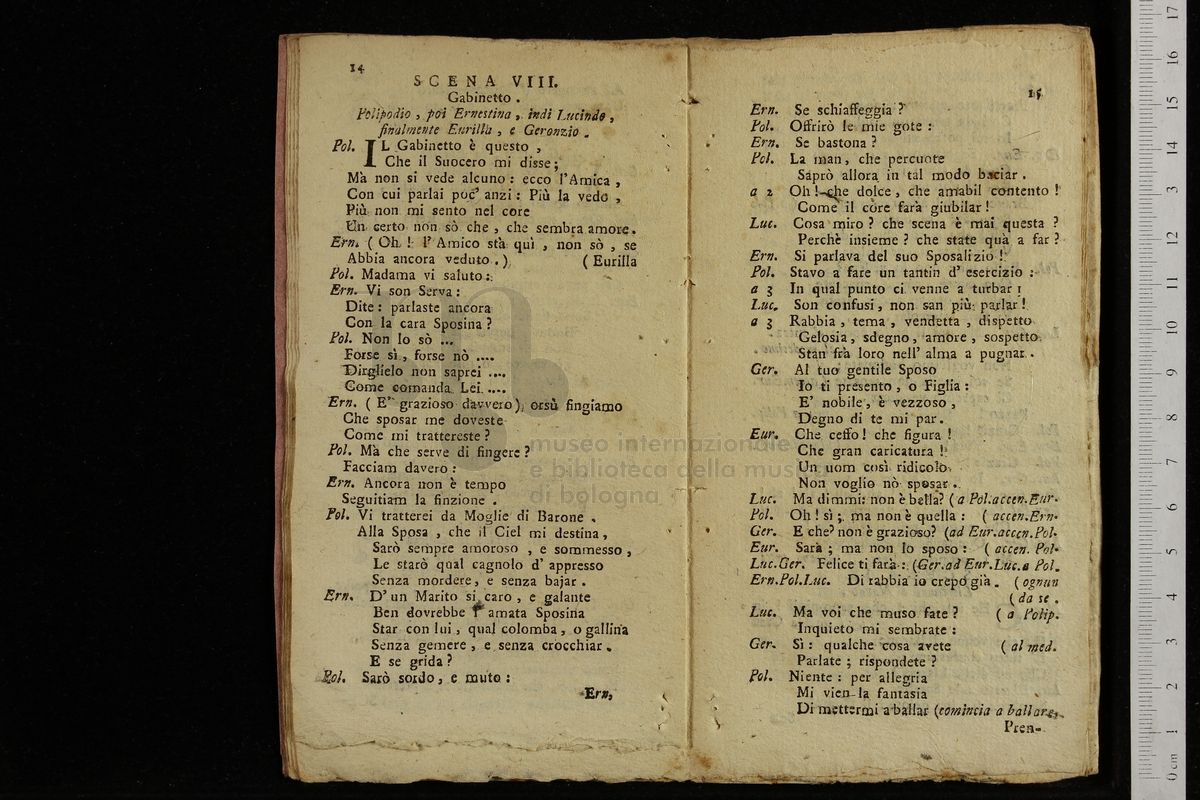 14
SCENA VIII.
Gabinetto .
Polipodio , poi Ernestina , indi Lucindo ,
finalmente Eurilla , e Geronzio .
Pol. IL Gabinetto è questo ,
Che il Suocero mi disse ;
Mà non si vede alcuno : ecco l'Amica ,
Con cui parlai poc' anzi : Più la vedo ,
Più non mi sento nel core
Un certo non sò che , che sembra amore.
Ern. ( Oh ! l' Amico stà quì , non sò , se
Abbia ancora veduto . ) ( Eurilla
Pol. Madama vi saluto :
Ern. Vi son Serva :
Dite : parlaste ancora
Con la cara Sposina ?
Pol. Non lo sò ...
Forse sì , forse nò ....
Dirglielo non saprei ....
Come comanda Lei ....
Ern. ( E' grazioso davvero ) orsù fingiamo
Che sposar me doveste
Come mi trattereste ?
Pol. Mà che serve di fingere ?
Facciam davero :
Ern. Ancora non è tempo
Seguitiam la finzione .
Pol. Vi tratterei da Moglie di Barone .
Alla Sposa , che il Ciel mi destina ,
Sarò sempre amoroso , e sommesso ,
Le starò qual cagnolo d' appresso
Senza mordere , e senza bajar .
Ern. D' un Marito sì caro , e galante
Ben dovrebbe l' amata Sposina
Star con lui , qual colomba , o gallina
Senza gemere , e senza crocchiar .
E se grida ?
Pol. Sarò sordo , e muto :
Ern.
15
Ern. Se schiaffeggia ?
Pol. Offrirò le mie gote :
Ern. Se bastona ?
Pol. La man , che percuote
Saprò allora in tal modo baciar .
a 2 Oh ! che dolce , che amabil contento !
Come il core farà giubilar !
Luc. Cosa miro ? che scena è mai questa ?
Perchè insieme ? che state quà a far ?
Ern. Si parlava del suo Sposalizio !
Pol. Stavo a fare un tantin d' esercizio :
a 3 In qual punto ci venne a turbar !
Luc. Son confusi , non san più parlar !
a 3 Rabbia , tema , vendetta , dispetto
Gelosia , sdegno , amore , sospetto
Stan frà loro nell' alma a pugnar .
Ger. Al tuo gentile Sposo
Io ti presento , o Figlia :
E' nobile , è vezzoso ,
Degno di te mi par .
Eur. Che ceffo ! che figura !
Che gran caricatura !
Un uom così ridicolo
Non voglio nò sposar .
Luc. Ma dimmi : non è bella ? ( a Pol. accen. Eur.
Pol. Oh ! sì ; ma non è quella : ( accen. Ern.
Ger. E che ? non è grazioso ? (ad Eur. accen. Pol.
Eur. Sarà ; ma non lo sposo : ( accen. Pol.
Luc.Ger. Felice ti farà : (Ger.ad Eur.Luc.a Pol.
Ern.Pol.Luc. Di rabbia io crepo già . ( ognun
( da se .
Luc. Ma voi che muso fate ? ( a Polip.
Inquieto mi sembrate :
Ger. Sì : qualche cosa avete ( al med.
Parlate ; rispondete ?
Pol. Niente : per allegria
Mi vien la fantasia
Di mettermi a ballar (comincia a ballare,
Pren-
museo internazionale
e biblioteca della musica
di bologna
0 cm 1 2 3 4 5 6 7 8 9 10 11 12 13 14 15 16 17